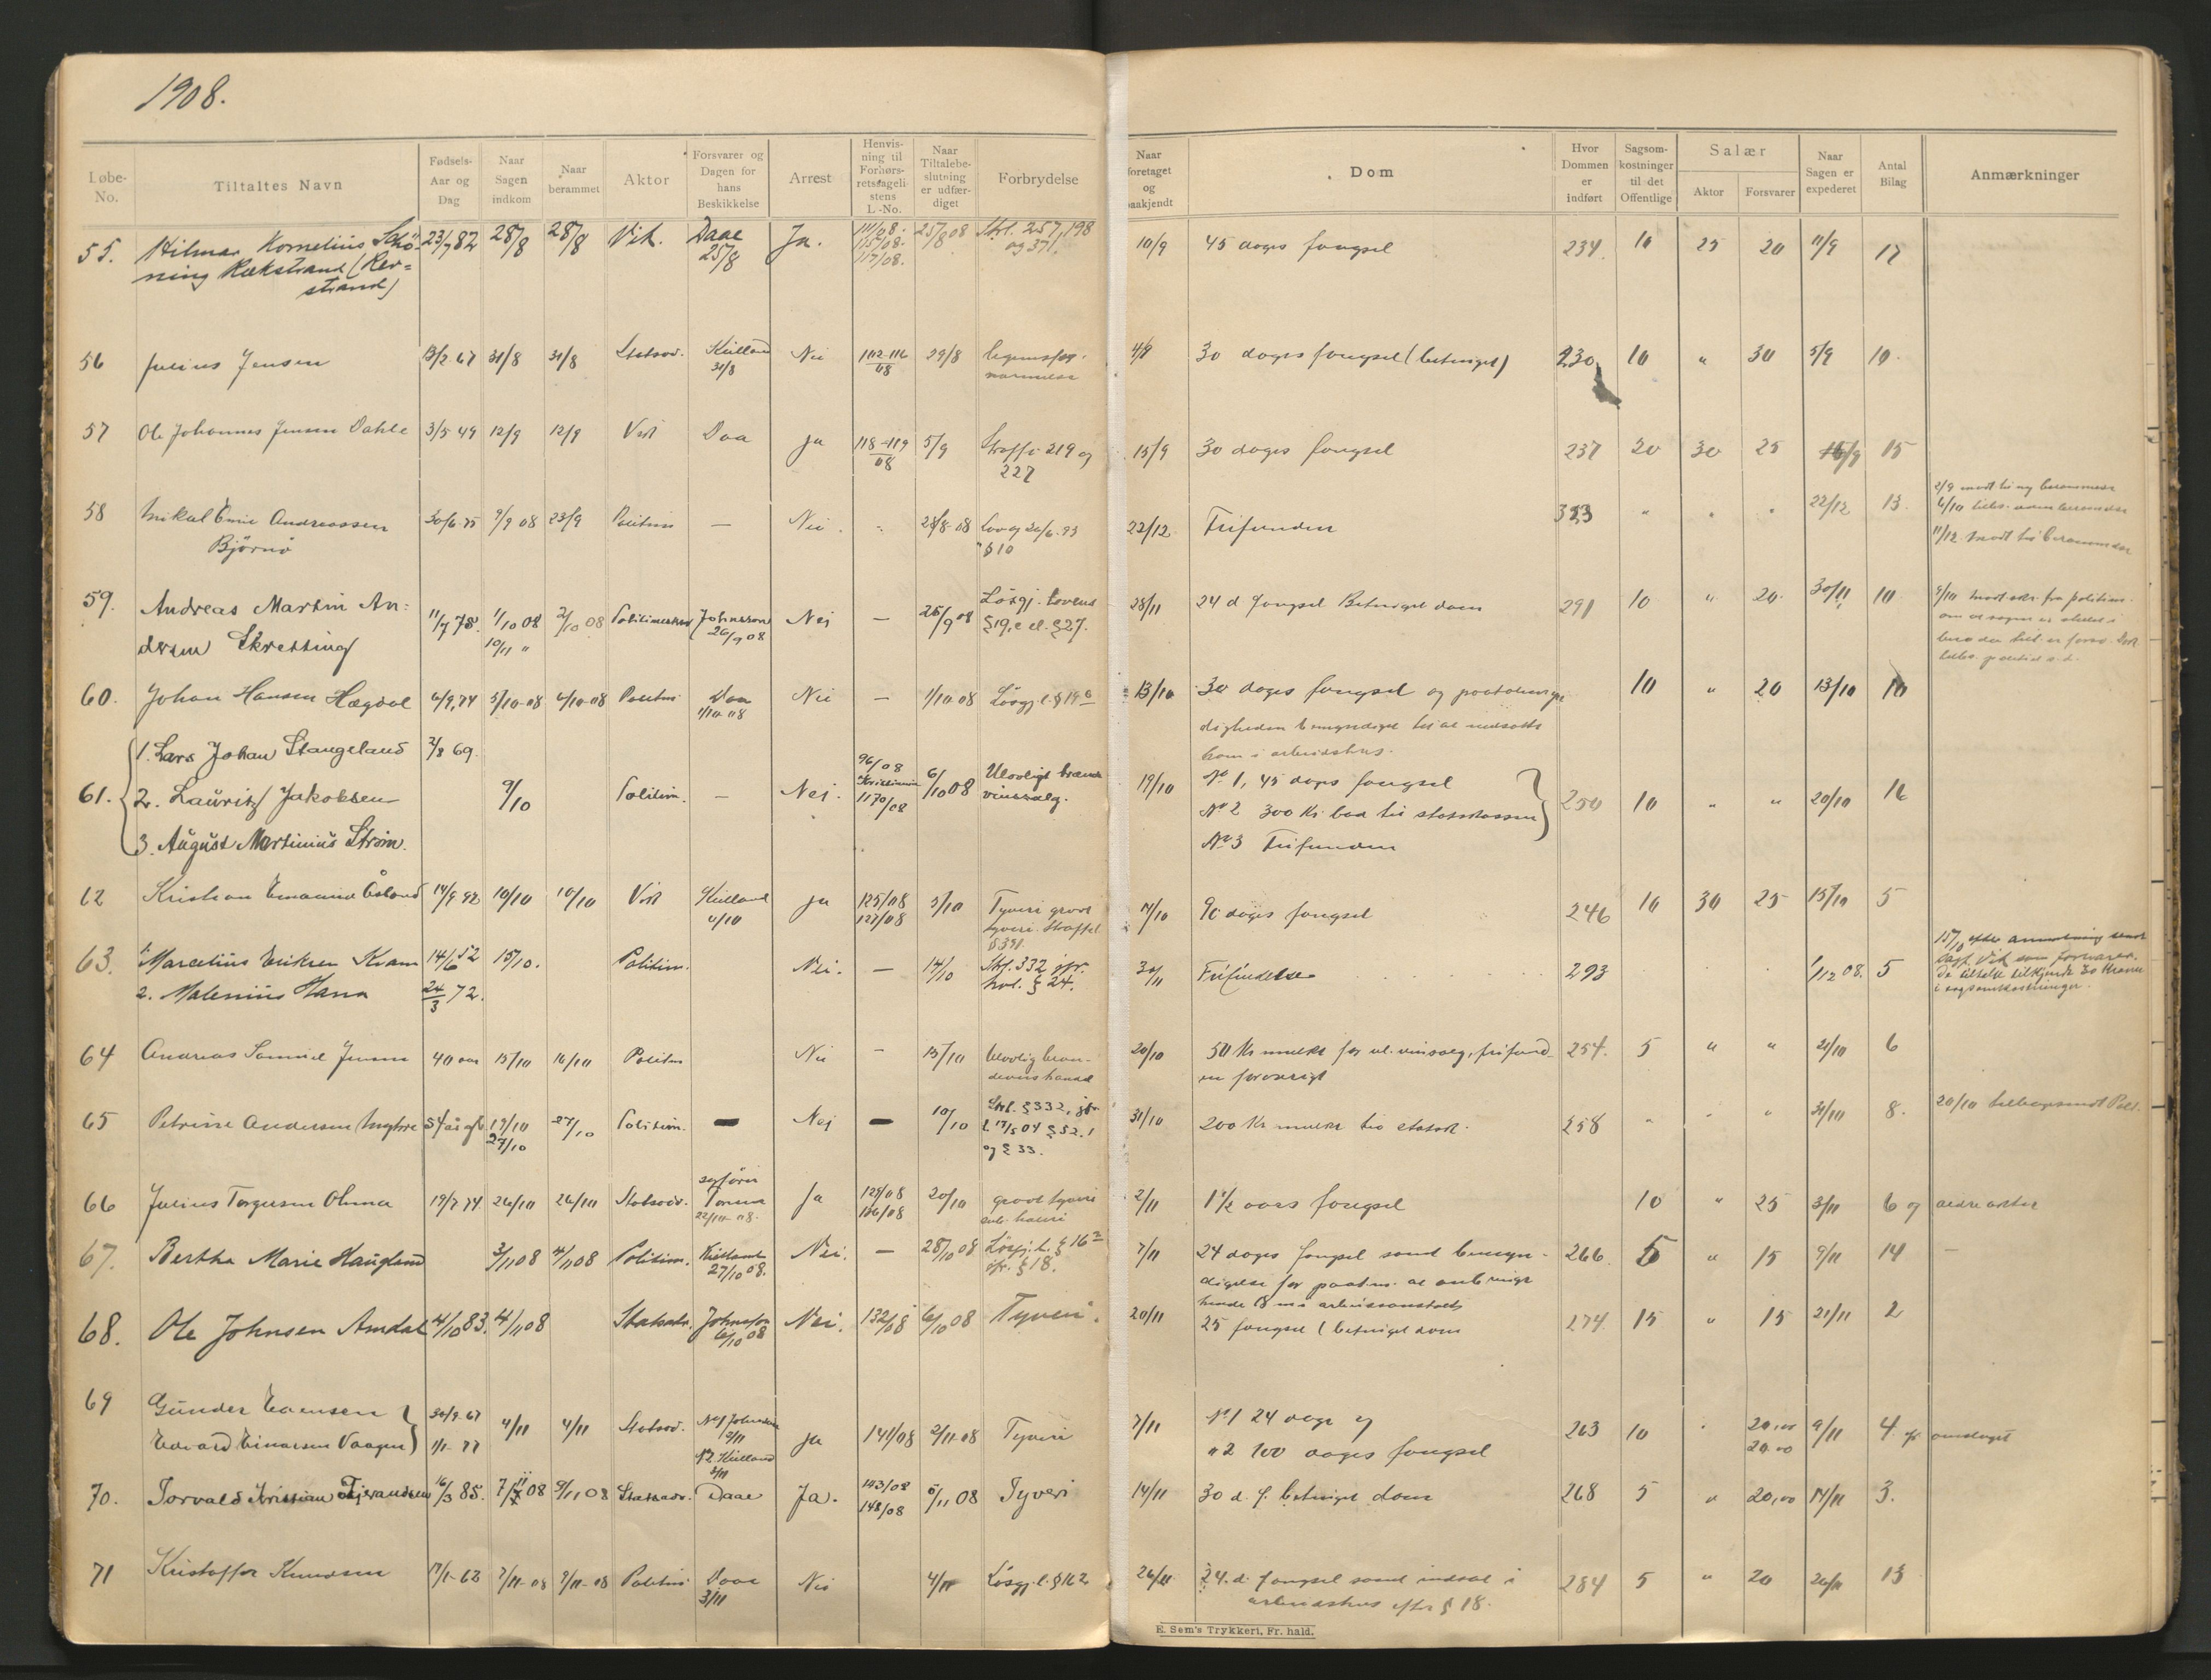 1908.
Løbe-No. Tiltaltes Navn Fødsels-Aar og Dag Naar Sagen indkom Naar berammet Aktor Forsvarer og Dagen for hans Beskikkelse Arrest Henvisning til Forhørsretssagelistens L.-No. Naar Tiltalebeslutning er udfærdiget Forbrydelse Naar foretaget og paakjendt Dom Hvor Dommen er indført Sagsomkostninger til det Offentlige Salær Aktor Forsvarer Naar Sagen er expederet Antal Bilag Anmærkninger
55. Hilmar Kornelius Schö- 23/7 82 28/8 28/8 Vik. Daae Ja. 111/08. 25/8 08 Strl. 257, 198 10/9 45 dages fængsel 234. 10 25 20 11/9 17
ning Rækstrand (Rev= 25/8 115/08. og 371.
strand) 117/08.
56 Julius Jensen 13/2 67 31/8 31/8 Statsad. Kielland Nei 112-116 29/8 legemsfor- 4/9 30 dages fængsel (betinget) 230 10 " 30 5/9 10.
31/8 08 nærmelse
57 Ole Johannes Jensen Dahle 3/5 49 12/9 12/9 Vik Daa ja 118-119 5/9 Straffl 219 og 15/9 30 dages fængsel 237 20 30 25 15/9 15
08 227
58 Mikal Emil Andreassen 30/6 75 9/9 08 23/9 Politim — Nei 28/8-08 Lov og 20/6-93 22/12 Frifunden 323 " " " 22/12 13.
Björnö § 10
59. Andreas Martin An= 11/7 78. 1/10 08 2/10 08 Politimester Johnsson Nei — 25/9 08 Løsgj. lovens 28/11 24 d fængsel Betinget dom 291 10 " 20 30/11 10
dersen Skretting 10/11 " 26/9 08 §19, c cl. §27.
60. Johan Hansen Hægdal 6/9, 74 3/10-08 6/10-08 Politim Daa Nei — 1/10-08 Løsgj. l. § 19 13/10 30 dages fængsel og paatalemyn 10 " 20 13/10 10
1/10-08 digheden bemyndiget til at indsætte
ham i arbeidshus.
61. 1. Lars Johan Stangeland 2/8 69. 96/08 19/10 No 1, 45 dages fængsel
2. Lauritz Jakobsen 9/10 Politim. — Nei. Kristiania 6/10 08 Ulovligt brænde No 2 300 Kr. bod til statskassen 250 10 " " 20/10 16
3. August Martinius Strøm. 1170/08 vinssalg. No 3 Frifunden
62 Kristian Emanuel Ösland 14/9 92 10/10 10/10 Vik Kielland ja 125/08 5/10 Tyveri grovt 14/10 90 dages fængsel 246 10 30 25 15/10 5
127/08 tyveri. Straffel.
63. 1. Marcelius Eriksen Kvam 14/6 52 15/10. Politim. Nei. — 14/10 Strl. 332 jfr. 30/11 Frifindelse 293 1/12 08. 5 15/10 efter anmodning sendt
2. Malenius Hana 24/3 72. hvl. § 24. sagf. Vik som forsvarer.
De tiltalte tilkjendt 30 kroner
i sagsomkostninger.
64 Andreas Samuel Jensen 40 aar 15/10 16/10 Politim Nei - 15/10 Ulovlig bræn- 20/10 50 Kr mulkt for ul. vinsalg, frifund- 254. 5 " " 21/10 6
devins handel en forøvrigt
65 Petrine Andersen 54 år gl. 19/10 27/10 Politim. — Nei — 10/10 Strl. §332, jfr. 31/10 200 Kr mulkt til statsk. 258 " " " 31/10 8. 20/10 tilbagesendt Pol.
27/10 l. 17/5 04 §52.1
og § 33.
66 Julius Torgersen Ohma 19/7 74 26/10 26/10 Statsadv. sagfører Ja 125/08 20/10 grovt tyveri 2/11 1½ aars fængsel 10 " 25 3/11 6 og ældre akter
22/10-08. 126/08 sub. hæleri
67. Bertha Marie Haugland 3/11 08 4/11 08 Politim. Kielland Nei. — 28/10 08 Løsgj. l. § 16 7/11 24 dages fængsel samt bemyn- 266 5 " 15 9/11 14 —
27/10 08. jfr. § 18. digelse for paatm. at anbringe
hende 18 m i arbeidsanstalt
68. Ole Johnsen Amdal 4/10 83. 4/11 08 Statsadv. Johnsson Nei. 132/08 6/10 08 Tyveri. 20/11 25 fængsel (betinget dom 274 15 " 15 21/11 2
6/10 08
69 Gunder Evensen 30/9-67 4/11 4/11 Statsad. No 1 Johnsson ja 141/08 2/11-08 Tyveri 7/11 No 1 24 dage og 263 10 " 20,00 9/11 4 omslaget
Edvard Einarsen Vaagen 1/1-77 No 2 Kielland " 2 100 dages fængsel 20,00
70. Torvald Kristian Tjerandsen 16/3 85. 7/11 08 9/11 08 Statsadv. Daae Ja. 143/08 5/11 08 Tyveri 14/11 30 d. f. betinget dom 268 5 " 20,00 14/11 3.
148/08
71 Kristoffer Knudsen 17/1-63 7/11-08 9/11-08 Politim. Daae Nei 4/11 Løsgj. l. §16 2 26/11 24 d. fængsel samt indsat i 284 5 " 20 26/11 13
3/11 arbeidshus efter § 18.
E. Sem's Trykkeri, Fr. hald.